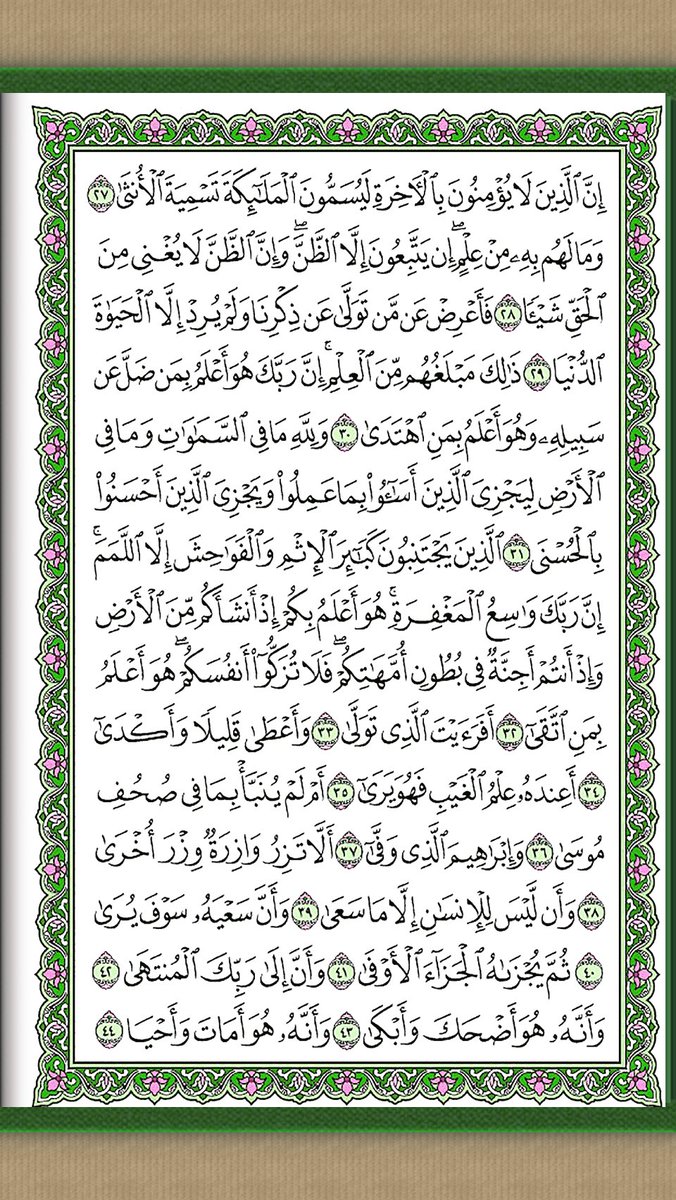 إِنَّ ٱلَّذِينَ لَا يُؤْمِنُونَ بِٱلْـَٔاخِرَةِ لَيُسَمُّونَ ٱلْمَلَـٰٓئِكَةَ تَسْمِيَةَ ٱلْأُنثَىٰ ٢٧
وَمَا لَهُم بِهِۦ مِنْ عِلْمٍ ۖ إِن يَتَّبِعُونَ إِلَّا ٱلظَّنَّ ۖ وَإِنَّ ٱلظَّنَّ لَا يُغْنِى مِنَ
ٱلْحَقِّ شَيْـًٔا ٢٨ فَأَعْرِضْ عَن مَّن تَوَلَّىٰ عَن ذِكْرِنَا وَلَمْ يُرِدْ إِلَّا ٱلْحَيَوٰةَ
ٱلدُّنْيَا ٢٩ ذَٰلِكَ مَبْلَغُهُم مِّنَ ٱلْعِلْمِ ۚ إِنَّ رَبَّكَ هُوَ أَعْلَمُ بِمَن ضَلَّ عَن
سَبِيلِهِۦ وَهُوَ أَعْلَمُ بِمَنِ ٱهْتَدَىٰ ٣٠ وَلِلَّهِ مَا فِى ٱلسَّمَـٰوَٰتِ وَمَا فِى
ٱلْأَرْضِ لِيَجْزِىَ ٱلَّذِينَ أَسَـٰٓـُٔوا۟ بِمَا عَمِلُوا۟ وَيَجْزِىَ ٱلَّذِينَ أَحْسَنُوا۟
بِٱلْحُسْنَى ٣١ ٱلَّذِينَ يَجْتَنِبُونَ كَبَـٰٓئِرَ ٱلْإِثْمِ وَٱلْفَوَٰحِشَ إِلَّا ٱللَّمَمَ ۚ
إِنَّ رَبَّكَ وَٰسِعُ ٱلْمَغْفِرَةِ ۚ هُوَ أَعْلَمُ بِكُمْ إِذْ أَنشَأَكُم مِّنَ ٱلْأَرْضِ
وَإِذْ أَنتُمْ أَجِنَّةٌ فِى بُطُونِ أُمَّهَـٰتِكُمْ ۖ فَلَا تُزَكُّوٓا۟ أَنفُسَكُمْ ۖ هُوَ أَعْلَمُ
بِمَنِ ٱتَّقَىٰٓ ٣٢ أَفَرَءَيْتَ ٱلَّذِى تَوَلَّىٰ ٣٣ وَأَعْطَىٰ قَلِيلًا وَأَكْدَىٰٓ
٣٤ أَعِندَهُۥ عِلْمُ ٱلْغَيْبِ فَهُوَ يَرَىٰٓ ٣٥ أَمْ لَمْ يُنَبَّأْ بِمَا فِى صُحُفِ
مُوسَىٰ ٣٦ وَإِبْرَٰهِيمَ ٱلَّذِى وَفَّىٰٓ ٣٧ أَلَّا تَزِرُ وَازِرَةٌ وِزْرَ أُخْرَىٰ
٣٨ وَأَن لَّيْسَ لِلْإِنسَـٰنِ إِلَّا مَا سَعَىٰ ٣٩ وَأَنَّ سَعْيَهُۥ سَوْفَ يُرَىٰ
٤٠ ثُمَّ يُجْزَىٰهُ ٱلْجَزَآءَ ٱلْأَوْفَىٰ ٤١ وَأَنَّ إِلَىٰ رَبِّكَ ٱلْمُنتَهَىٰ ٤٢
وَأَنَّهُۥ هُوَ أَضْحَكَ وَأَبْكَىٰ ٤٣ وَأَنَّهُۥ هُوَ أَمَاتَ وَأَحْيَا ٤٤